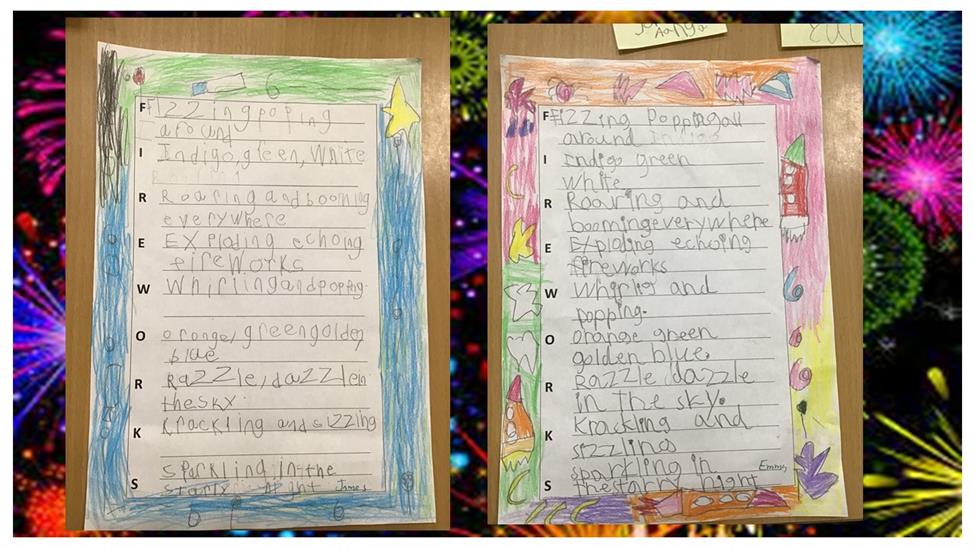 F Fizzingpoping
around
I Indigo, green, White
R Roaring andbooming
everywhere
E EXploding echoing
fireworks
W Whirlingandpoping.
O orange, greengolden
blue
R Razzle, dazzlein
theskY.
K Krackling and sizzing
S sparkling in the
starry night James
Aanya
F Fizzing Poppingall
around Indigo
I Indigo green
white
R Roaring and
boomingeverywhere
E Exploding echoing
fireworks
W Whirlig and
popping.
O orange green
golden blue.
R Razzle dazzle
in the sky.
K Krackling and
sizzling
S sparkling in Emmy
thestarry night